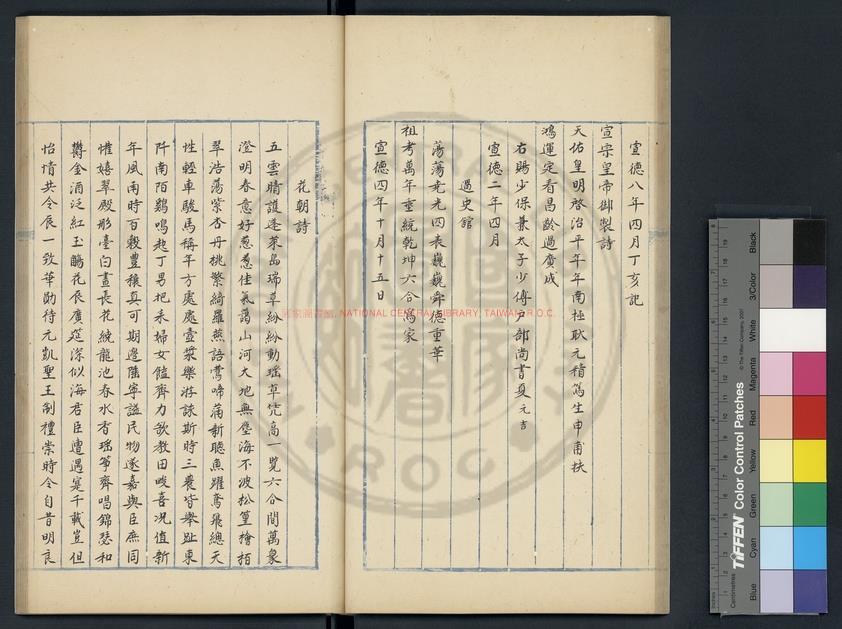 宣德八年四月丁亥記
宣宗皇帝御製詩
天佑皇明啓治平年年南極耿元精篤生申甫扶
鴻運定看昌齡過廣成
右賜少保兼太子少傅戶部尚書夏元吉
宣德二年四月
過史館
蕩蕩堯光四表巍巍舜德重華
祖考萬年垂統乾坤六合為家
宣德四年十月十五日
花朝詩
五雲晴護蓬萊島瑞草紛紛動瑤草凭高一覽六合間萬象
澄明春意好蔥蔥佳氣藹山河大地無塵海不波松篁檜栢
翠浩蕩紫杏丹桃繁綺羅燕語鶯啼滿新聽魚躍鳶飛總天
性輕車駿馬稱年方處處壺漿樂游詠斯時三農皆舉趾東
阡南陌鷄鳴起丁男把耒婦女饁齊力敦教田畯喜况值新
年風雨時百穀豐穰真可期邊陲寧謐民物遂嘉與臣庶同
懽嬉翠殿彤臺白晝長花繞龍池春水香瑤箏齊唱錦瑟和
欝金酒泛紅玉觴花辰廣筵深似海君臣遭遇寔千載豈但
怡情共令辰一致華勛待元凱聖王制禮崇時令自昔明良
國家圖書館, NATIONAL CENTRAL LIBRARY, TAIWAN, R.O.C.
TIFFEN Color Control Patches
© The Tiffen Company, 2007
Centimetres
Inches
Blue
Cyan
Green
Yellow
Red
Magenta
White
3/Color
Black